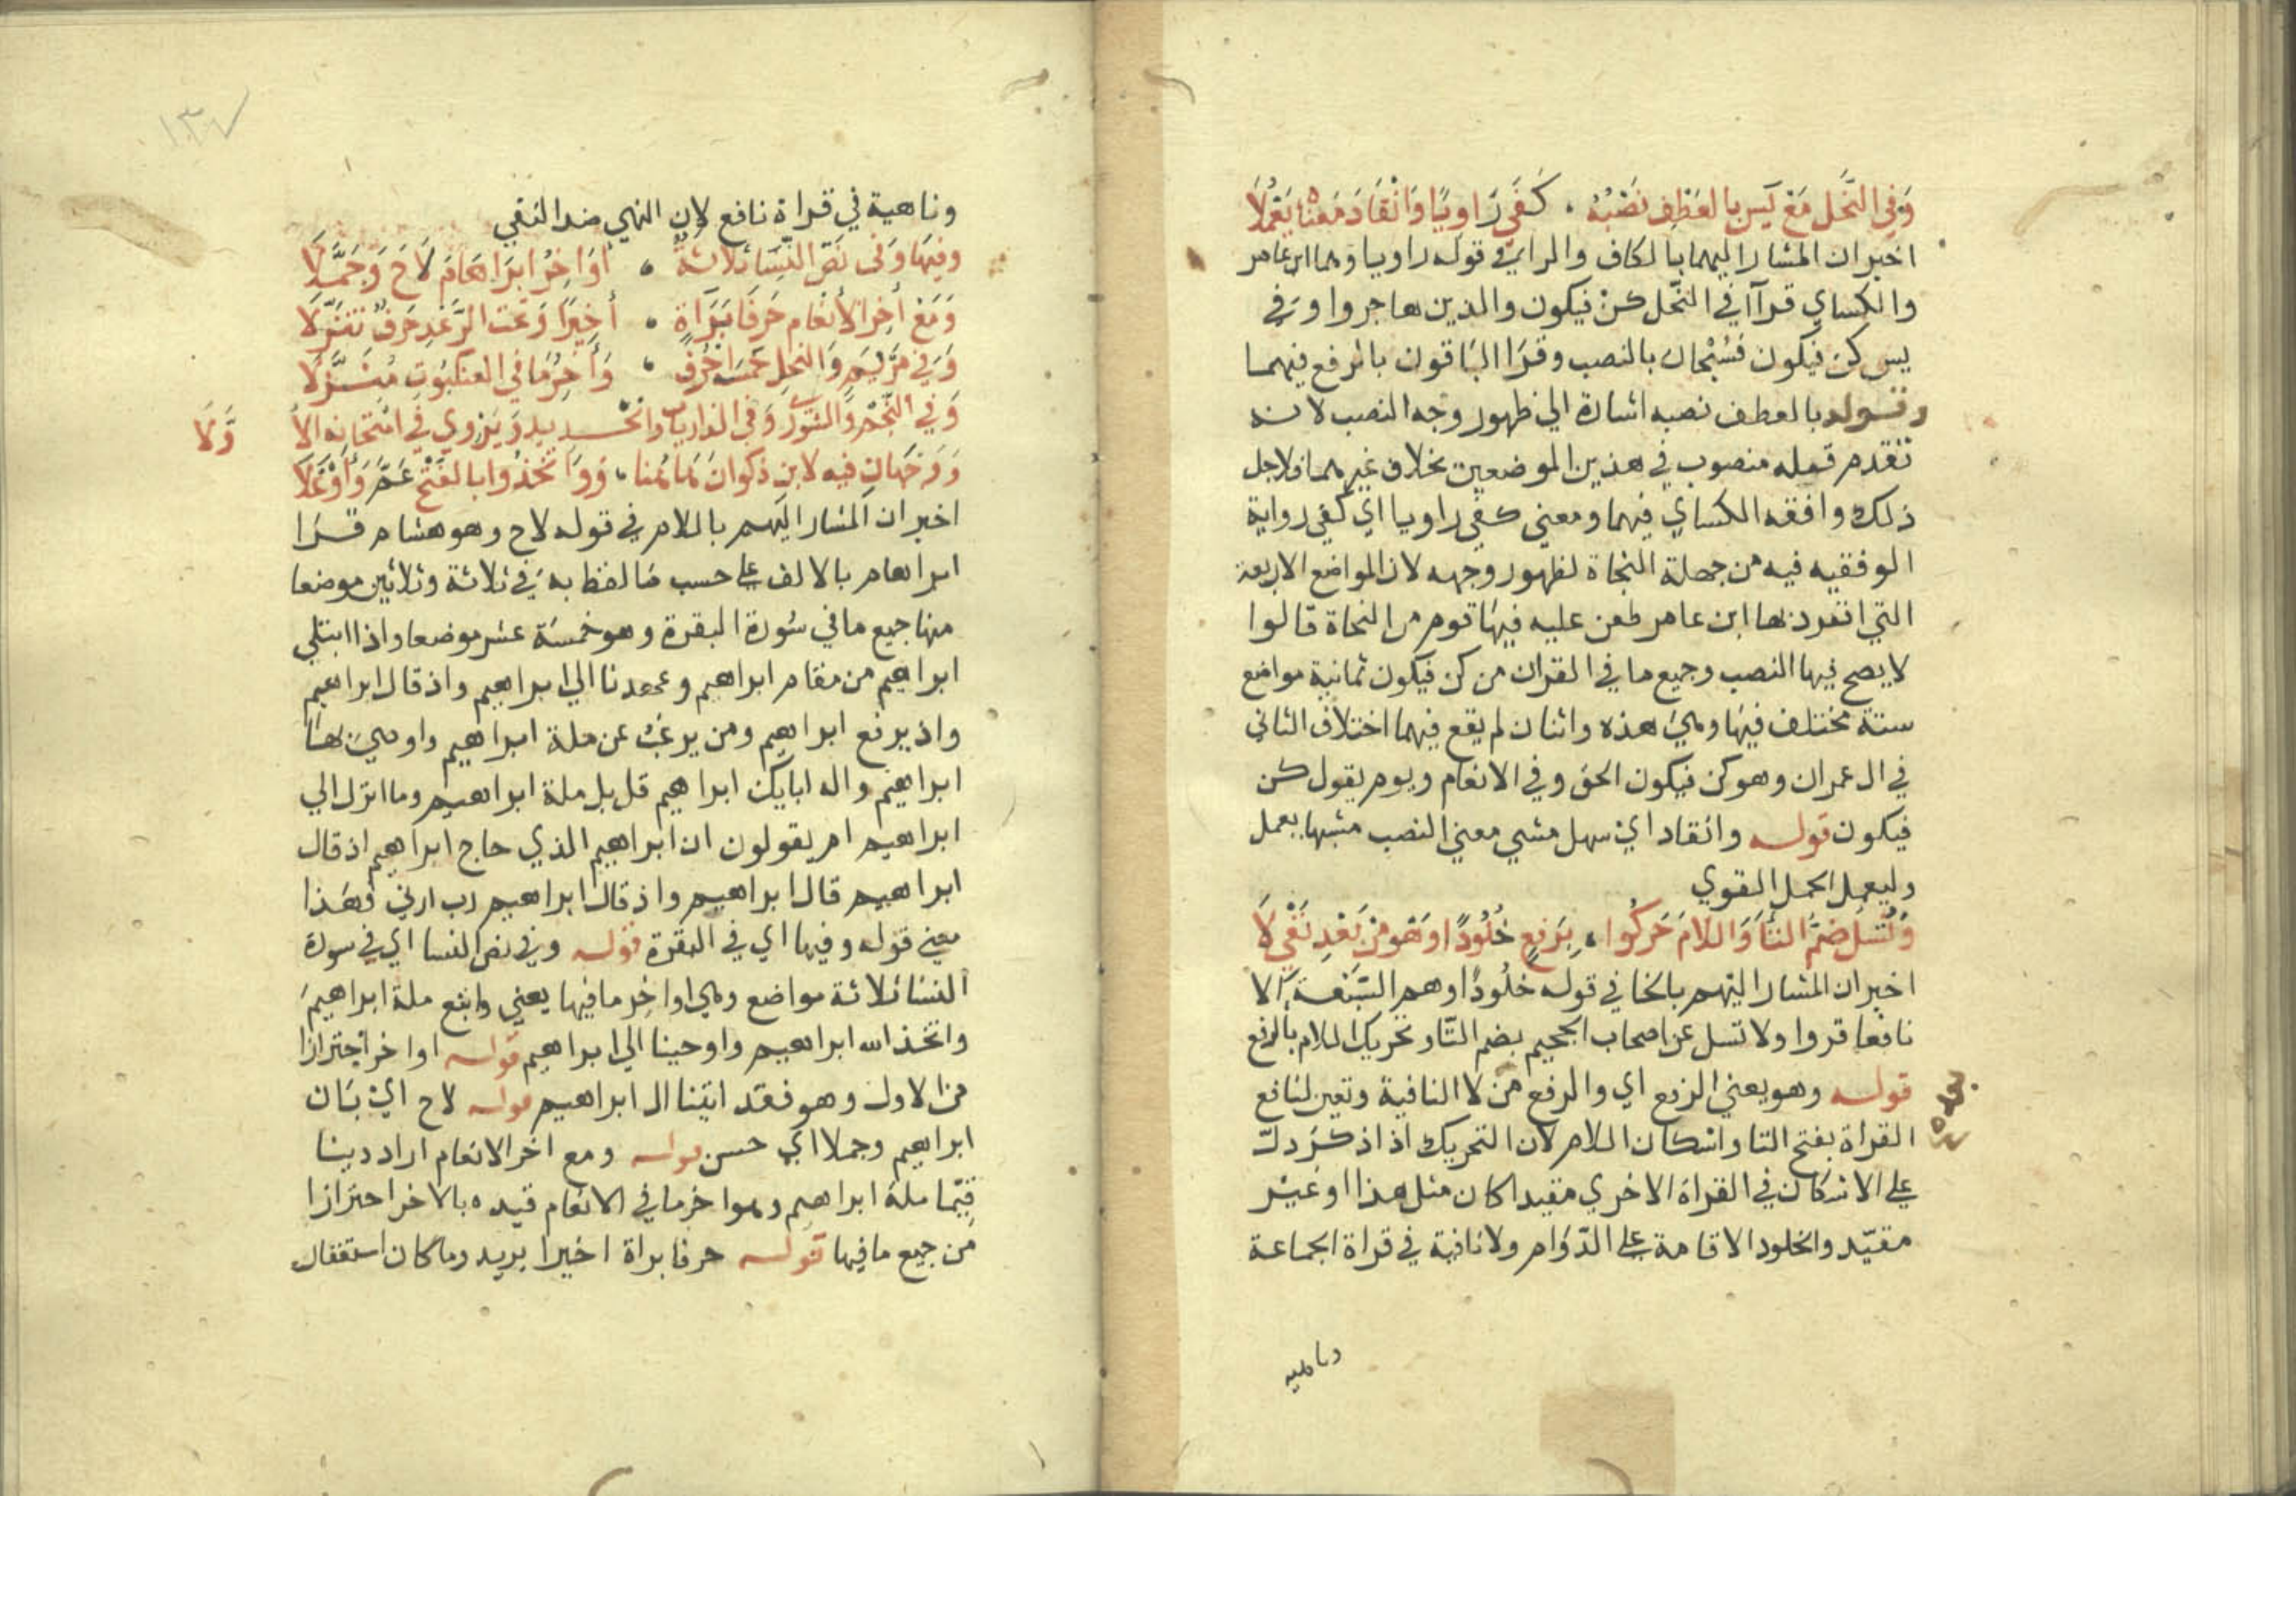 وَفِي النَّحْلِ مَعْ يَس بِالعَطْفِ نَصْبُهُ . كَفَى رَاوِيًا وَانْقَادَ مَعْنَاهُ يَعْمُلَا
اخبر ان المشار اليهما بالكاف والراي في قوله راويا وهما ابن عامر
والكساي قرآ في النحل كن فيكون والذين هاجروا وفي
يس كن فيكون فسُبْحان بالنصب وقرا الباقون بالرفع فيهما
وقوله بالعطف نصبه اشارة الي ظهور وجه النصب لانه
تقدم قبله منصوب في هذين الموضعين بخلاف غيرهما فلاجل
ذلك وافقه الكساي فيهما ومعني كفي راويا اي كفي رواية
الوقفيه فيه من جهلة النحاة لظهور وجهه لان المواضع الاربعة
التي انفرد بها ابن عامر طعن عليه فيها قوم من النحاة قالوا
لا يصح فيها النصب وجميع ما في القران من كن فيكون ثمانية مواضع
ستة مختلف فيها وهي هذه واثنان لم يقع فيهما اختلاف الثاني
في ال عمران وهو كن فيكون الحق وفي الانعام ويوم يقول كن
فيكون قوله وانقاد اي سهل مشي معني النصب مشبها يعمل
وليعمل الجمل القوي
وَتُسْئَلُ ضَمُّ التَّا وَاللَّامَ حَرَّكُوا . بِرَفْعٍ خُلُودًا وَهْوَ مِنْ بَعْدِ نَفْيِ لَا
اخبر ان المشار اليهم بالخا في قوله خلُودًا وهم السَّبْعة الا
نافعا قروا ولا تسل عن اصحاب الجحيم بضم التا وتحريك اللام بالرفع
قوله وهو يعني الرفع اي والرفع من لا النافية وتعين لنافع
القراة بفتح التا واسكان اللام لان التحريك اذا ذكر دل
علي الاسكان في القراة الاخري مقيدا كان مثل هذا او غير
مقيّد والخلود الاقامة علي الدّوام ولا نافية في قراة الجماعة
وناهيه
وناهية في قراة نافع لان النهي ضد النفي
وفِيهَا وَفي نَصِّ النِّسَا ثَلَاثَةٌ . أَوَاخِرُ ابْرَاهَامَ لَاحَ وَجَمَّلَا
وَمَعْ أَخِرِ الأَنْعَامِ حَرْفَا بَرَآةٍ . أَخِيرًا وَتَحْتَ الرَّعْدِ حَرْفٌ تَنَزَّلَا
وَفي مَرْيَمٍ وَالنحلِ خمسَة أَحْرُفٍ . وَأَخِرُ مَا في العنكَبُوتِ مُنَزَّلَا
وَفي النَّجْمِ وَالشُّورَى وَفي الذاريات والحديدِ وَيَرْوِي في امْتحانِه الأَ
وَّلَا
وَوَجْهَانِ فيه لابنِ ذكوانَ هَاهُنا . وَوَاتَّخَذُوا بالفَتْحِ عَمَّ وَأَوْغَلَا
اخبر ان المشار اليهم باللام في قوله لاح وهو هشام قرا
ابراهام بالالف علي حسب ما لفظ به في ثلاثة وثلاثين موضعا
منها جميع ما في سُورة البقرة وهو خمسة عشر موضعا واذ ابتلي
ابراهيم من مقام ابراهيم وعهدنا الي ابراهيم واذ قال ابراهيم
واذ يرفع ابراهيم ومن يرغب عن ملة ابراهيم واوصي بها
ابراهيم واله ابايك ابراهيم قل بل ملة ابراهيم وما انزل الي
ابراهيم ام يقولون ان ابراهيم الذي حاج ابراهيم اذ قال
ابراهيم قال ابراهيم واذ قال ابراهيم رب ارني فهذا
معني قوله وفيها اي في البقرة قوله وفي نص النسا اي في سورة
النسا ثلاثة مواضع وهي اواخِر ما فيها يعني واتبع ملة ابراهيم
واتخذ الله ابراهيم واوحينا الي ابراهيم قوله اواخر احترازا
من الاول وهو فقد اتينا ال ابراهيم قوله لاح اي بَان
ابراهيم وجملا اي حسن قوله ومع اخر الانعام اراد دينا
قيّما ملة ابراهيم وهو اخر ما في الانعام قيده بالاخر احترازا
من جميع ما فيها قوله حرفا براة اخيرا يريد وما كان استغفار